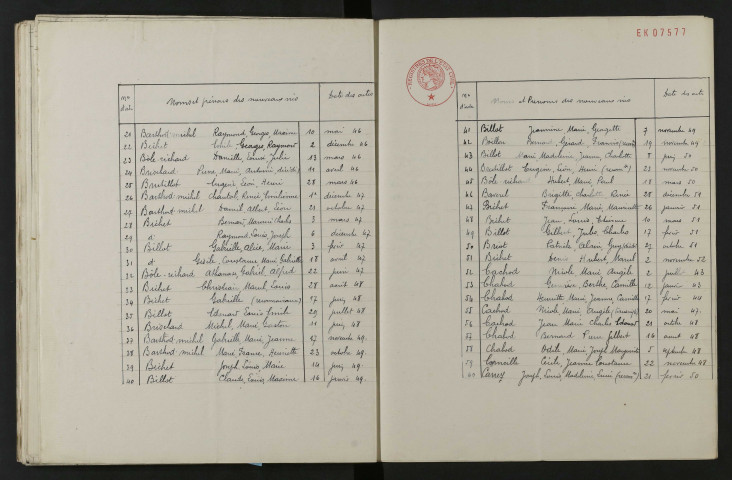 Nos d'act.
Noms et prénoms des nouveaux nés
Date des actes
20 Barthod michel Raymond, Georges, 10 mai 46
22 Bichet Louis Georges, Raymond 2 décembre 46
23 Bole richard Danielle, Louise, Julie 13 mars 46
24 Brischard Pierre, Marie, Antoine 11 avril 46
25 Bertillot Eugène Léon, Henri 28 mars 46
26 Barthod michel Chantal, Renée, Emilienne 1er décembre 47
27 Barthod michel Daniel Albert, Léon 21 octobre 47
28 Bichet 3 mars 47
29 d° Raymond, Louis, Joseph 6 décembre 47
30 Billot Gabrielle Alice, Marie 3 févr 47
31 d° Gisèle, Constance Marie, Gabrielle 18 août 47
32 Bôle richard Gabriel Alfred 22 juin 47
33 Bichet Christian Marcel, Louis 28 août 48
34 Bichet Gabrielle 57 juin 48
35 Billot Edouard Louis 29 juillet 48
36 Brischard Michel, Marie, Gaston 11 juin 48
37 Barthod michel Gabrielle Marie, Jeanne 27 novembre 49
38 Barthod michel Marie France, Henriette 23 octobre 49
39 Bichet Joseph, Louis, Marie 14 juin 49
40 Billot Claude, Louis, Maxime 16 janvier 49
EK07577
Nos d'acte
Noms et Prénoms des nouveaux nés
Date des actes
41 Billot Jeannine Marie Georgette 7 novembre 49
42 Boillon Bernard, Gérard, 19 novembre 49
43 Billot Marie Madeleine, Jeanne, Charlotte 5 juin 50
44 Bertillot Eugène, Léon, Henri 23 novembre 50
45 Bole richard Hubert, Marie Paul 18 mars 50
46 Brigitte, Charlotte Renée 28 décembre 51
47 Bichet Françoise Marie, 24 janvier 51
48 Bichet Jean, Louis, Etienne 10 mars 51
49 Billot Gilbert, Jules, Charles 17 févr 51
50 Patrick, Alain, 25 octobre 51
51 Bichet Denis Hubert, Marcel 2 novembre 52
52 Cachod Nicole Marie Angèle 2 juillet 43
53 Chabod Berthe, Camille 12 janvier 43
54 Chabod Henriette Marie, Jeanne, Camille 17 février 44
55 Cachod Nicole, Marie, Angèle 20 mai 47
56 Cachod Jean Marie Charles Edouard 21 octobre 48
57 Chabod Bernard Pierre Gilbert 16 août 48
58 Chabod Odile, Marie, Joseph Marguerite 5 septembre 48
59 Cécile, Jeanne, 22 novembre 48
60 Carrez Joseph, Louis, Madeleine 21 février 50